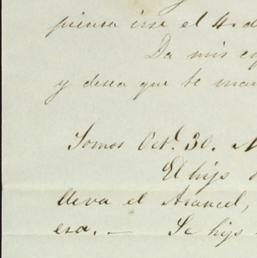 piensa irse el 4. d
Da mis
y desea que te man
Somos Oct. 30.
El hijo
lleva el Arancel,
esa. — Su hijo